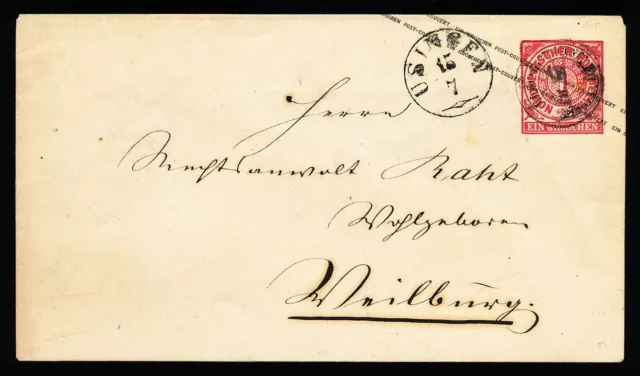 EIN GROSCHEN POST-COUVERT EIN GROSCHEN POST-COUVERT
USINGEN
15
7
NORDDEUTSCHER POSTBEZIRK
1
EIN GROSCHEN
Herrn
Rechtsanwalt Raht
Wohlgeboren
Weilburg.